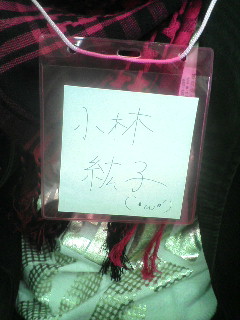 小林
紘子
(・ω・)